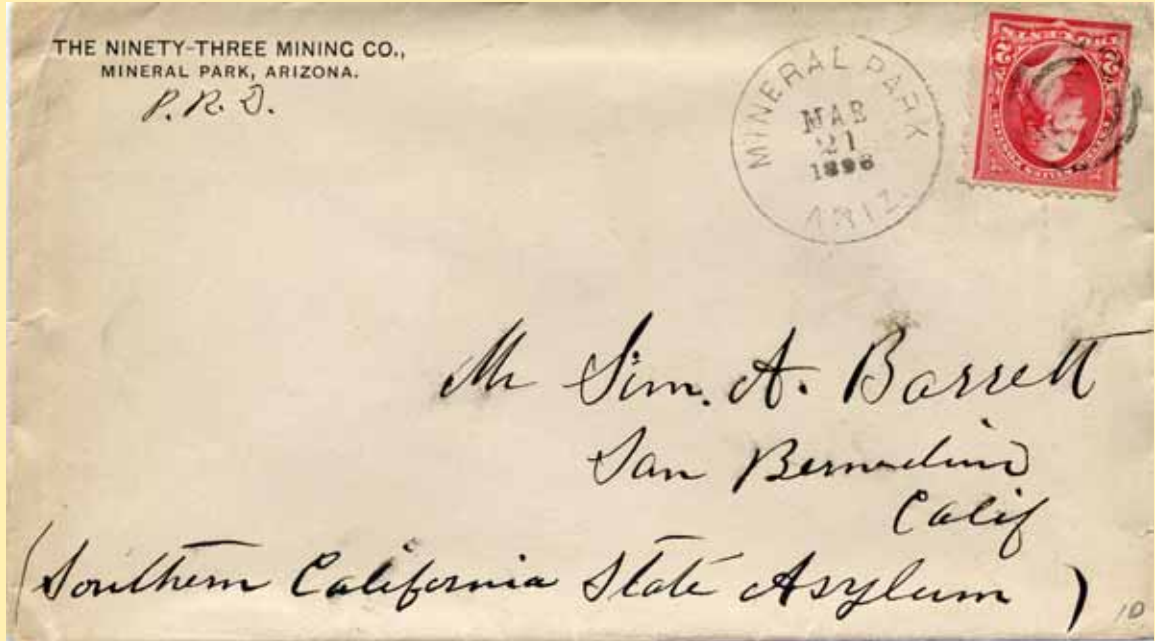 THE NINETY-THREE MINING CO.,
MINERAL PARK, ARIZONA.
P. R. D.
MINERAL PARK
MAR
21
1898
ARIZ.
2 2
Mr Sim. A. Barrett
San Bernadino
Calif
(Southern California State Asylum)
10